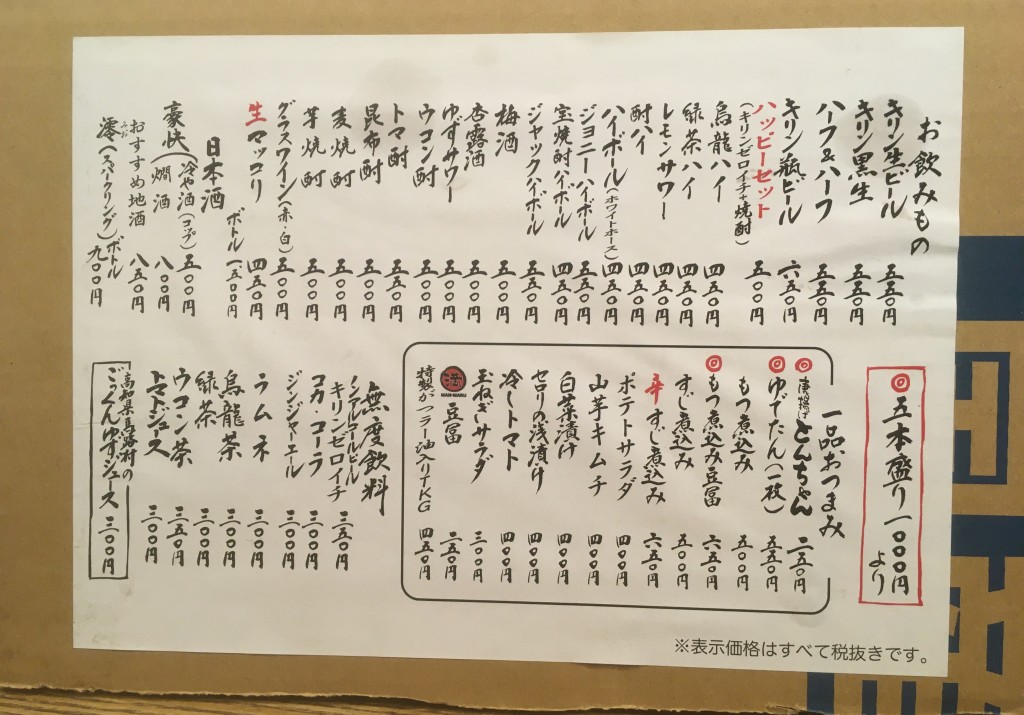 お飲みもの
キリン生ビール 五五〇円
キリン黒生 五五〇円
ハーフ&ハーフ 五五〇円
キリン瓶ビール 六五〇円
ハッピーセット
(キリンゼロイチ+焼酎) 五〇〇円
烏龍ハイ 四五〇円
緑茶ハイ 四五〇円
レモンサワー 四五〇円
酎ハイ 四五〇円
ハイボール(ホワイトホース) 四五〇円
ジョニーハイボール 五五〇円
宝焼酎ハイボール 四五〇円
ジャックハイボール 五五〇円
梅酒 四五〇円
杏露酒 四五〇円
ゆずサワー 四五〇円
ウコン酎 四五〇円
トマト酎 五五〇円
昆布酎 五〇〇円
麦焼酎 五〇〇円
芋焼酎 五〇〇円
グラスワイン(赤・白) 五〇〇円
生マッコリ 四五〇円
ボトル 一五〇〇円
日本酒
豪快(冷や酒(コップ) 五〇〇円
燗酒 八〇〇円
おすすめ地酒 八五〇円
澪(スパークリング)ボトル 九〇〇円
みお
◎五本盛り一〇〇〇円
より
一品おつまみ
◎唐揚げとんちゃん 二五〇円
◎ゆでたん(一枚) 五五〇円
もつ煮込み 五〇〇円
◎もつ煮込み豆冨 六五〇円
すじ煮込み 五〇〇円
辛すじ煮込み 六五〇円
ポテトサラダ 四〇〇円
山芋キムチ 四〇〇円
白菜漬け 四〇〇円
セロリの浅漬け 四〇〇円
冷しトマト 四〇〇円
玉ねぎサラダ 三〇〇円
満 豆冨 二五〇円
特製がつラー油入りTKG 四五〇円
無度飲料
ノンアルコールビール
キリンゼロイチ 三五〇円
コカ・コーラ 三〇〇円
ジンジャーエール 三〇〇円
ラムネ 三〇〇円
烏龍茶 三〇〇円
緑茶 三〇〇円
ウコン茶 三五〇円
トマトジュース 三〇〇円
高知県馬路村の
ごっくんゆずジュース 三〇〇円
※表示価格はすべて税抜きです。